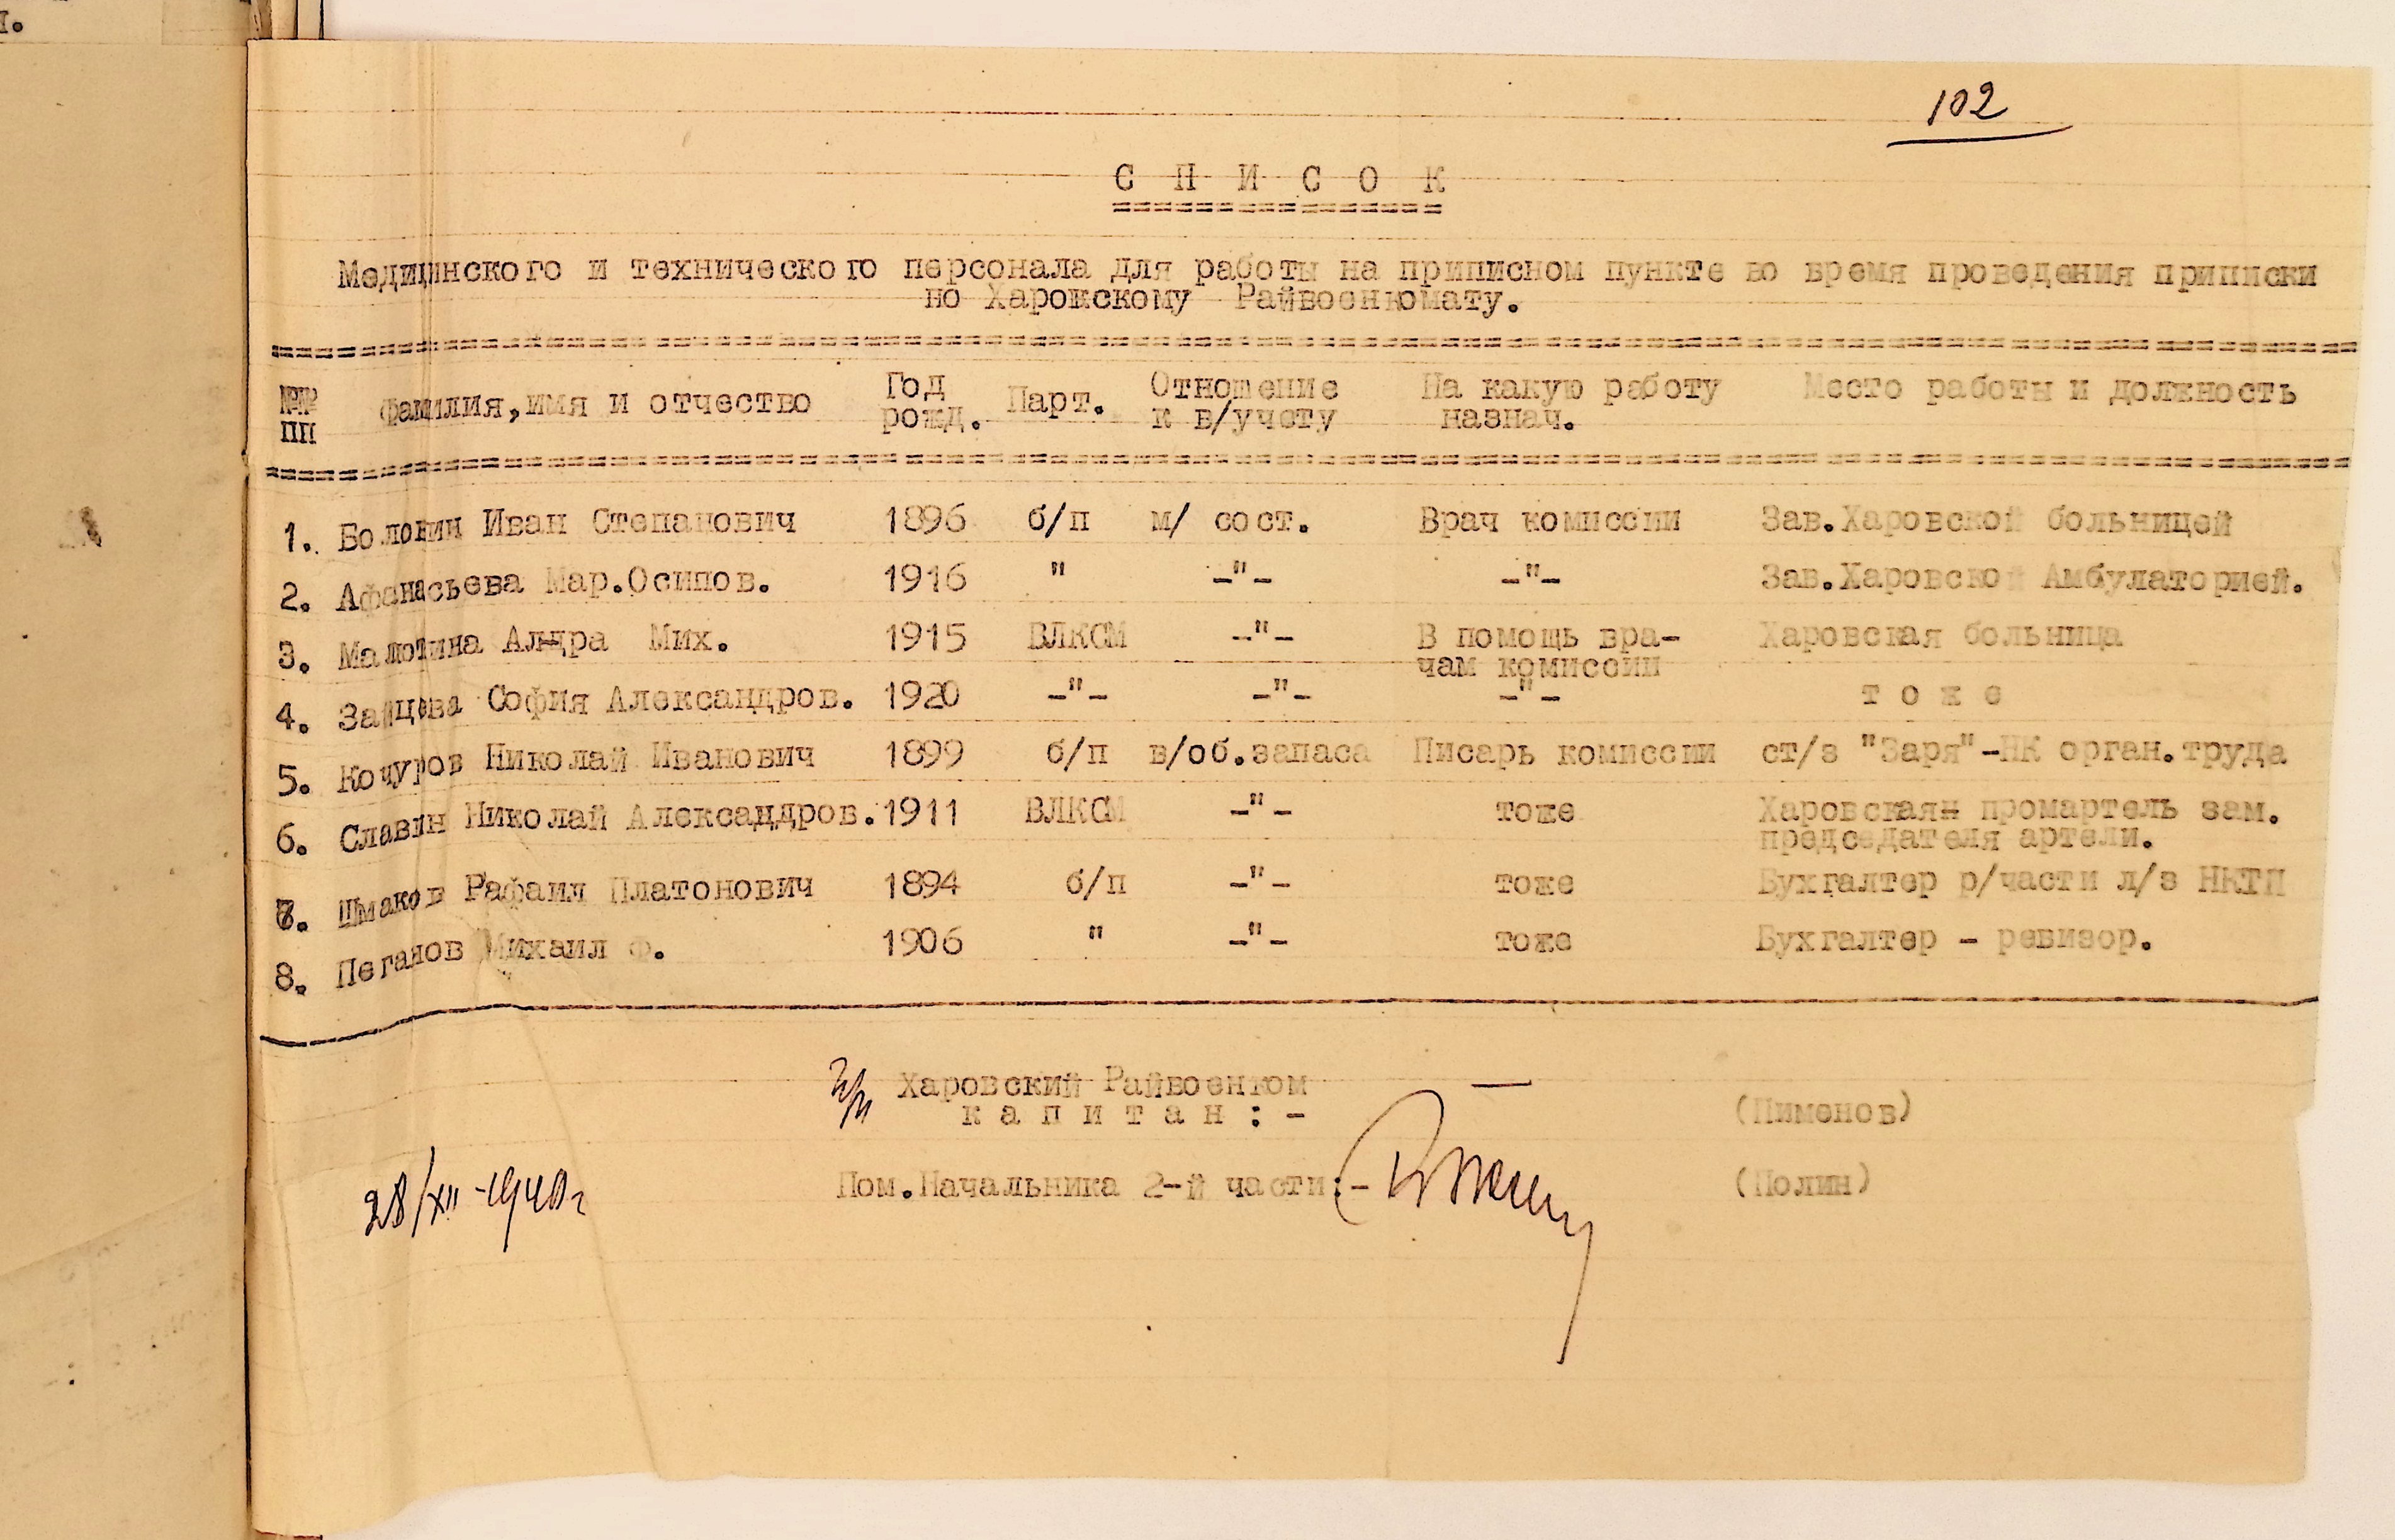 й.
102
С П И С О К
Медицинского и технического персонала для работы на приписном пункте во время проведения приписки
по Харовскому Райвоенкомату.
№№ пп Фамилия, имя и отчество Год рожд. Парт. Отношение к в/учету На какую работу назнач. Место работы и должность
1. Боловин Иван Степанович 1896 б/п м/ сост. Врач комиссии Зав.Харовской больницей
2. Афанасьева Мар.Осипов. 1916 " -"- -"- Зав.Харовской Амбулаторией.
3. Малютина Ал-дра Мих. 1915 ВЛКСМ -"- В помощь вра- Харовская больница
чам комиссии
4. Зайцева София Александров. 1920 -"- -"- -"- т о ж е
5. Кочуров Николай Иванович 1899 б/п в/об.запаса Писарь комиссии ст/з "Заря"-НК орган.труда
6. Славин Николай Александров. 1911 ВЛКСМ -"- тоже Харовская промартель зам.
председателя артели.
7. Шмаков Рафаил Платонович 1894 б/п -"- тоже Бухгалтер р/части л/з НКТП
8. Пеганов Михаил Ф. 1906 " -"- тоже Бухгалтер - ревизор.
Харовский Райвоенком
к а п и т а н : - (Пименов)
Пом.Начальника 2-й части:- (Полин)
28/XII-1940г